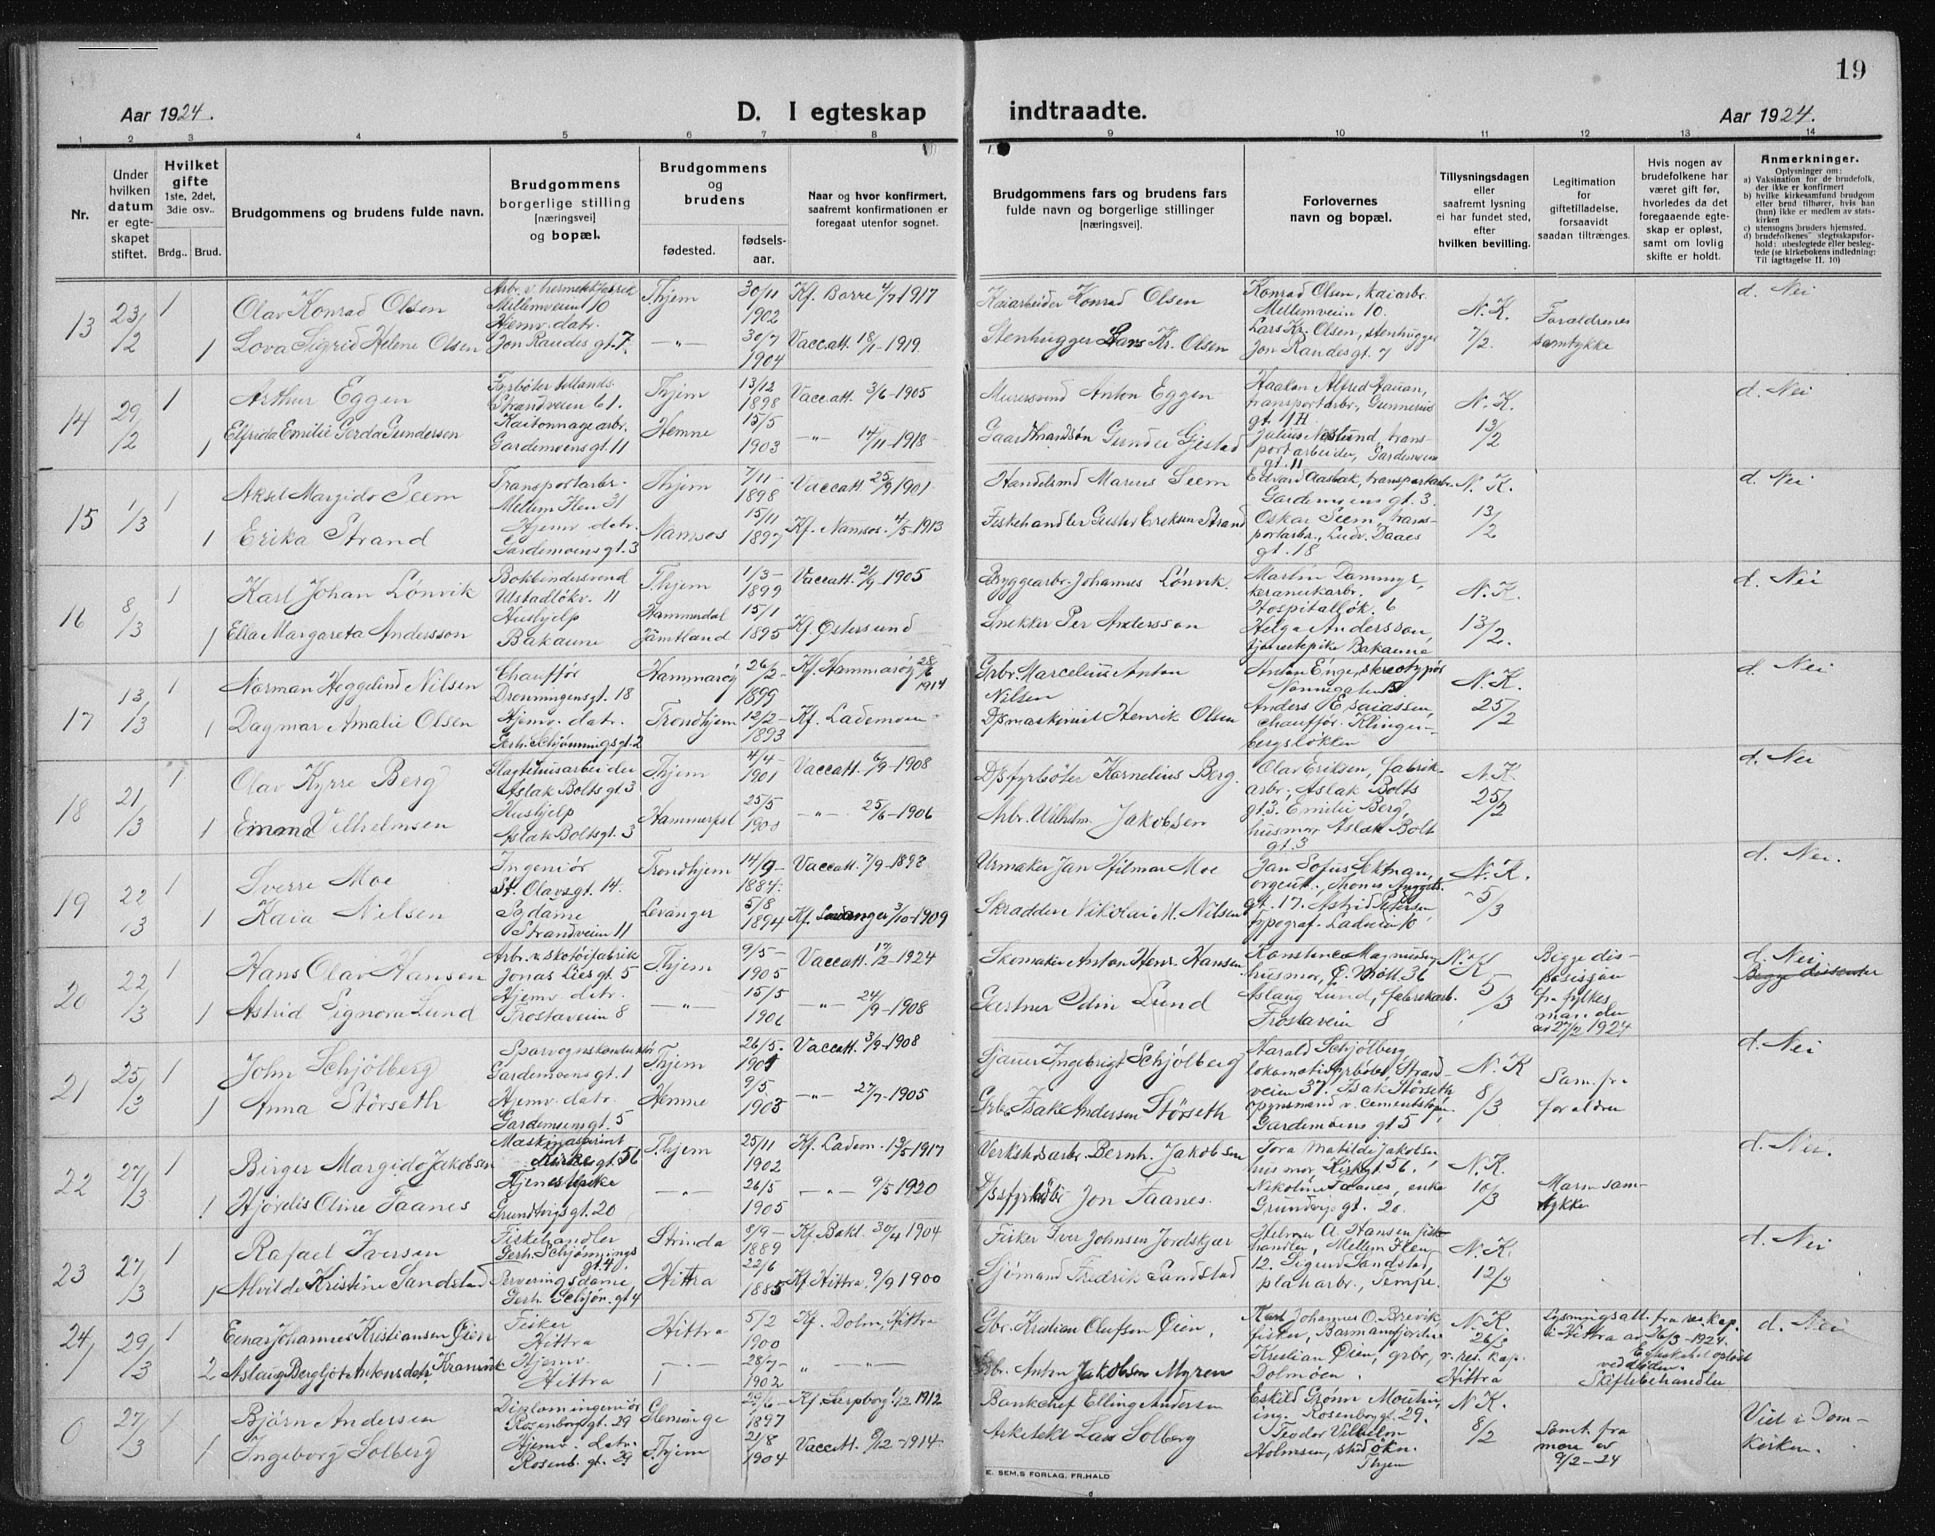 19
Aar 1924.
D. I egteskap
indtraadte.
Aar 1924.
1 2 3 4 5 6 7 8 9 10 11 12 13 14
Nr.
Under hvilken datum er egteskapet stiftet.
Hvilket gifte 1ste, 2det, 3die osv..
Brdg.. Brud.
Brudgommens og brudens fulde navn.
Brudgommens borgerlige stilling [næringsvei] og bopæl.
Brudgommens og brudens
fødested.
fødsels-aar.
Naar og hvor konfirmert, saafremt konfirmationen er foregaat utenfor sognet.
Brudgommens fars og brudens fars fulde navn og borgerlige stillinger [næringsvei].
Forlovernes navn og bopæl.
Tillysningsdagen eller saafremt lysning ei har fundet sted, efter hvilken bevilling.
Legitimation for giftetilladelse, forsaavidt saadan tiltrænges.
Hvis nogen av brudefolkene har været gift før, hvorledes da det foregaaende egteskap er opløst, samt om lovlig skifte er holdt.
Anmerkninger.
Oplysninger om:
a) Vaksination for de brudefolk, der ikke er konfirmert
b) hvilke kirkesamfund brudgom eller brud tilhører, hvis han (hun) ikke er medlem av statskirken
c) utensogns bruders hjemsted.
d) brudefolkenes slegtsskapsforhold: ubeslegtede eller beslegtede (se kirkebokens indledning: Til iagttagelse II. 10)
13 23/2 1 Olav Konrad Olsen
Arbr. v. hermetikfabrik Mellemveien 10
Thjem 30/11 1902 Kf. Barre 4/7 1917
Kaiarbeider Konrad Olsen
Konrad Olsen, kaiarbr. Mellemveien 10.
N. K. 7/2.
Forældrenes samtykke
d. Nei
1 Lova Sigrid Helene Olsen
Hjemv. datr. Jon Raudes gt. 7.
—"— 30/7 1904 Vaccatt. 18/1-1919.
Stenhugger Lars Kr. Olsen
Lars Kr. Olsen, stenhugger Jon Raudes gt. 7
14 29/2 1 Arthur Eggen
Fyrbøter Strandveien 61.
Thjem 13/12 1898 Vaccatt. 3/6-1905
Murersvend Anton Eggen
Haakon Alfred Hauan, transportarbr., Gunnerus gt. 11H
N. K. 13/2
d. Nei
1 Elfrida Emilie Gerda Gundersen
Gardemoens gt. 11
Hemne 15/5 1903 —"— 14/11-1918
Gaardmandsøn Gunder Gjestad
Julius Neslund, transportarbeider, Gardemoens gt. 11
15 1/3 1 Aksel Margido Seem
Transportarbr. Mellem Ilen 31
Thjem 7/11-1898 Vaccatt. 25/9 1901
Handelsmd Marius Seem
Edvard Aasbak, transportarbr. Gardemoens gt. 3.
N. K. 13/2
d. Nei
1 Erika Strand
Hjemv. datr. Gardemoens gt. 3
Namsos 15/11 1897 Kf. Namsos. 4/5-1913
Fiskehandler Gustav Eriksen Strand
Oskar Seem, transportarbr., Ludv. Daaes gt. 18
16 8/3 1 Karl Johan Lønvik
Bokbindersvend Ulstadløkv. 11
Thjem 1/3-1899 Vaccatt. 21/9-1905
Byggearbr. Johannes Lønvik.
Martin Dammyr, keramikarbr. Hospitalløk. 6
N. K. 13/2.
d. Nei
1 Ella Margareta Andersson
Hushjelp Bakaune
Hammerdal Jämtland 15/1 1895 Kf. Østersund
Snekker Per Andersson
Helga Andersson, tjenestepike Bakaune
17 13/3 1 Norman Heggelund Nilsen
Chauffør Dronningensgt. 18
Hammarøy 26/2-1899 Kf. Hammarøy 28/6 1914
Grbr. Marcelius Anton Nilsen
Anton Enge, stereotypør Nonnegaten 15
N. K. 25/2
d. Nei
1 Dagmar Amalie Olsen
Hjemv. datr. Gerh. Schjønnings gt. 2
Trondhjem 12/2-1893 Kf. Lademoen
D/smaskinist Henrik Olsen
Anders Esaiassen, chauffør. Klingenbergsløkken
18 21/3 1 Olav Kyrre Berg
Slagtehusarbeider Aslak Bolts gt. 3
Thjem 4/4-1901 Vaccatt. 6/9-1908
D/sfyrbøter Kornelius Berg.
Olav Eriksen, fabrikarbr., Aslak Bolts gt. 3.
N. K. 25/2
d. Nei
1 Emma Vilhelmsen
Hushjelp Aslak Boltsgt. 3
25/5 1900 —"— 25/6-1906
Arbr. Wilhelm Jakobsen
Emilie Berg, husmor, Aslak Bolt gt. 3
19 22/3 1 Sverre Moe
Ingeniør St. Olavsgt. 14.
Trondhjem 14/9-1884. Vaccatt. 7/9-1898
Urmaker Jan Hilmar Moe
gt. 17.
N. K. 5/3
d. Nei.
1 Kaia Nilsen
Strandveien 11
Levanger 5/8 1894 Kf. Levanger 3/10-1909
Skrædder Nikolai M. Nilsen
Astrid Petersen typograf.
20 22/3 1 Hans Olav Hansen
Arbr. v. skotøifabrik Jonas Lies gt. 5
Thjem 9/5-1905 Vaccatt. 17/2-1924
Skomaker Anton Henr. Hansen
Konstance Magnussen, husmor,
N. K. 5/3
Begge dispensasjon fr. fylkesmanden av 27/2 1924
d. Nei
Begge dissenter
1 Astrid Signora Lund
Hjemv. datr. Frostaveien 8
—"— 15/5 1906 —"— 24/9-1908
Gartner Odin Lund
Aslaug Lund, fabrikarb. Frostaveien 8
21 25/3 1 John Schjølberg
Sporvognskonduktør Gardemoensgt. 1
Thjem 26/5. 1901 Vaccatt. 3/9-1908
Sjauer Ingebrigt Schjølberg
Harald Schjølberg lokomotivfyrbøder, Strandveien 37.
N. K 8/3
Sam. fr. forældre
d. Nei
1 Anna Störseth
Hjemv. datr. Gardemoensgt. 5
Hemne 9/5. 1903 —"— 27/7-1905
Grbr. Isak Andersen Störseth
Isak Störseth opsynsmand v. cementstøperi, Gardemoens gt 5
22 27/3 1 Birger Margido Jakobsen
Kirkegt. 56
Thjem 25/11 1902 Kf. Ladem. 13/5-1917
Verkstedsarbr. Bernh. Jakobsen
Tora Matilde Jakobsen husmor, Kirkegt 56.
N. K. 10/3
Morens samtykke
d. Nei.
1 Hjördis Oline Faanes
Tjenestepike Grundtvigs gt. 20
—"— 26/5 1905 —"— 9/5 1920
D/sfyrbøder Jon Faanes.
Nikoline Faanes, enke Grundtvigs gt. 20.
23 27/3 1 Rafael Iversen
Fiskehandler Gerh. Schjønnings gt. 4.
Strinda 8/9-1889 Kf. Bakl. 30/4 1904
Fisker Iver Johnsen Jordskjær
A. Hansen fiskehandler, Mellem Ilen 12.
N. K. 12/3
d. Nei
1 Alvilde Kristine Sandstad
Serveringsdame, Gerh. Schjøn. gt 4
Hittra 22/6 1885 Kf. Hittra, 9/9 1900
Sjømand Fredrik Sandstad
Sigurd Sandstad, platearbr., Tempe.
24 29/3 1 Einar Johannes Kristiansen Øien
Fisker Hittra
Hittra 5/2 1900 Kf. Dolm, Hittra
Gbr. Kristian Olufsen Øien,
Karl Johannes O. Brevik, fisker, Barmannfjorden
N. K. 26/3 v. res. kap. Hittra
Lysningsatt. fra res. kap. i Hittra av 26/3-1924.
Egteskapet opløst ved døden. Skiftebehandlet
d. Nei
2 Aslaug Bergljot Antonsdatr. Kramvik
Hjemv. Hittra
—"— 28/7-1902 —"— —"—
Gbr. Anton Jakobsen Myren
Kristian Øien, grbr, Dolmøen.
0 27/3 1 Bjørn Andersen
Diplomingeniør Rosenborggt. 29
Glemmige 29/6-1897 Kf. Sarpborg 1/12 1912
Bankchef Elling Andersen
Eskild Grønn ing. Rosenborggt. 29.
N. K. 8/2
Samt. fra moren av 9/2-24
Viet i Domkirken.
1 Ingeborg Solberg
Hjemv. datr. Rosenb. gt. 29
Thjem 21/8 1904 Vaccatt. 8/12-1914
Arkitekt Lars Solberg
Teodor Vilhelm Holmsen, Thjem
E. SEM.S FORLAG, FR.HALD